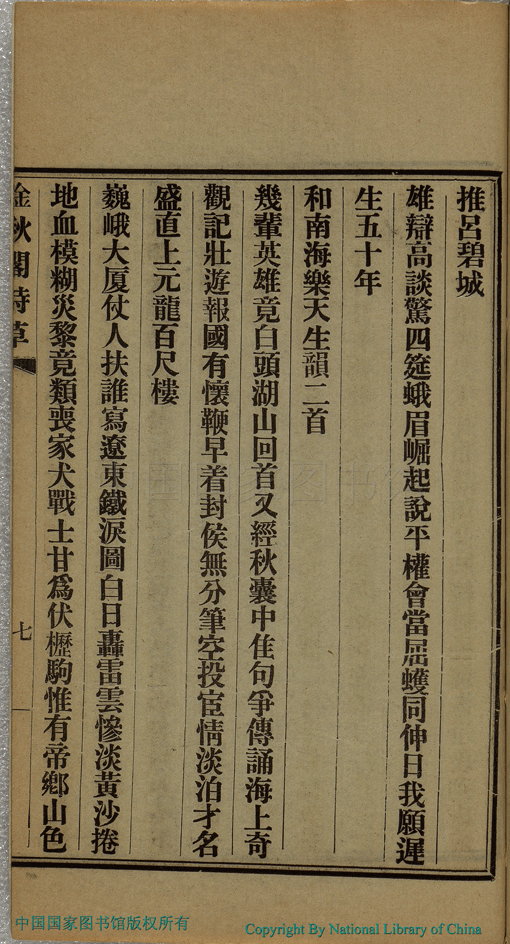 推呂碧城
雄辯高談驚四筵蛾眉崛起說平權會當屈蠖同伸日我願遲
生五十年
和南海樂天生韻二首
幾輩英雄竟白頭湖山回首又經秋囊中佳句爭傳誦海上奇
觀記壯遊報國有懷鞭早着封侯無分筆空投宦情淡泊才名
盛直上元龍百尺樓
巍峨大厦仗人扶誰寫遼東鐵淚圖白日轟雷雲慘淡黃沙捲
地血模糊災黎竟類喪家犬戰士甘爲伏櫪駒惟有帝鄉山色
秋閣詩草
七
中国国家图书馆版权所有
Copyright By National Library of China